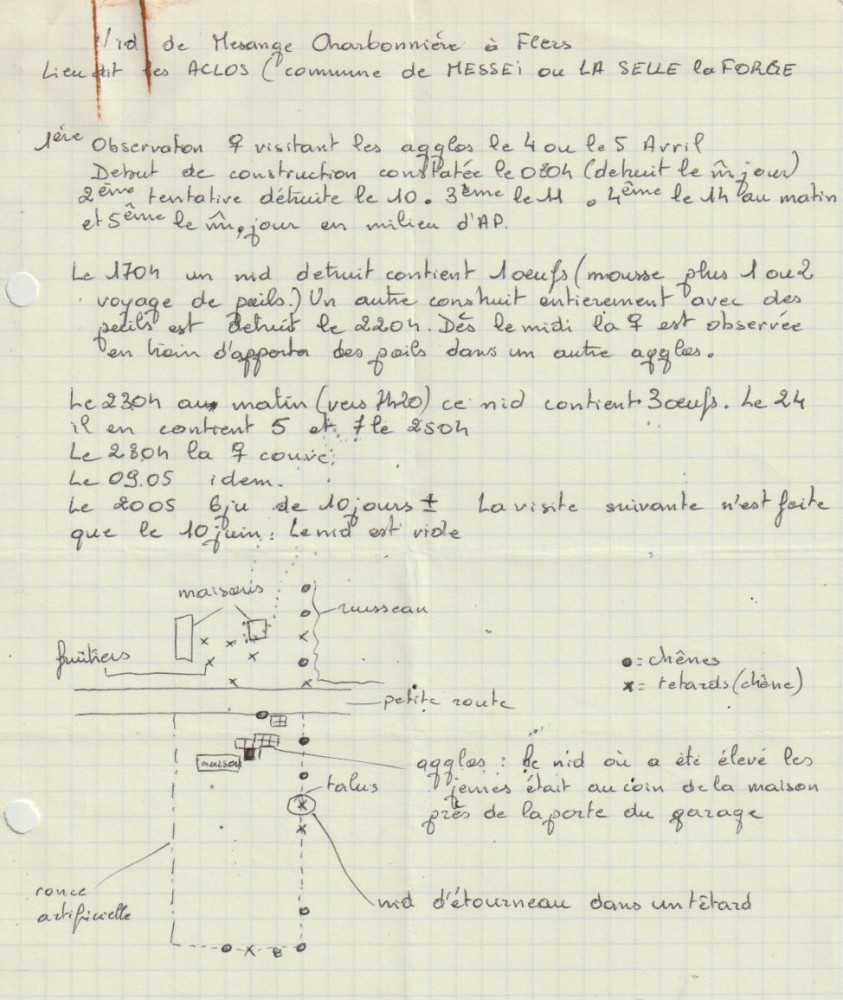 Nid de Mesange Charbonnière à Flers
Lieu dit les ACLOS (commune de MESSEI ou LA SELLE la FORGE
1ère Observation ♀ visitant les agglos le 4 ou le 5 Avril
Debut de construction constatée le 0804 (detruit le m̂ jour)
2ème tentative détruite le 10. 3ème le 11. 4ème le 14 au matin
et 5ème le m̂ jour en milieu d'AP.
Le 1704 un nid detruit contient 1 oeufs (mousse plus 1 ou 2
voyage de poils.) Un autre construit entierement avec des
poils est detruit le 2204. Dès le midi la ♀ est observée
en train d'apporter des poils dans un autre agglos.
Le 2304 au matin (vers 7h20) ce nid contient 3 oeufs. Le 24
il en contient 5 et 7 le 2504
Le 2804 la ♀ couve.
Le 09.05 idem.
Le 2005 6 ju de 10 jours ± La visite suivante n'est faite
que le 10 juin : Le nid est vide
maisons
ruisseau
fruitiers
● = chênes
x = tetards (chêne)
petite route
maison
agglos : le nid où a été élevé les
jeunes était au coin de la maison
près de la porte du garage
talus
ronce
artificielle
nid d'étourneau dans un têtard